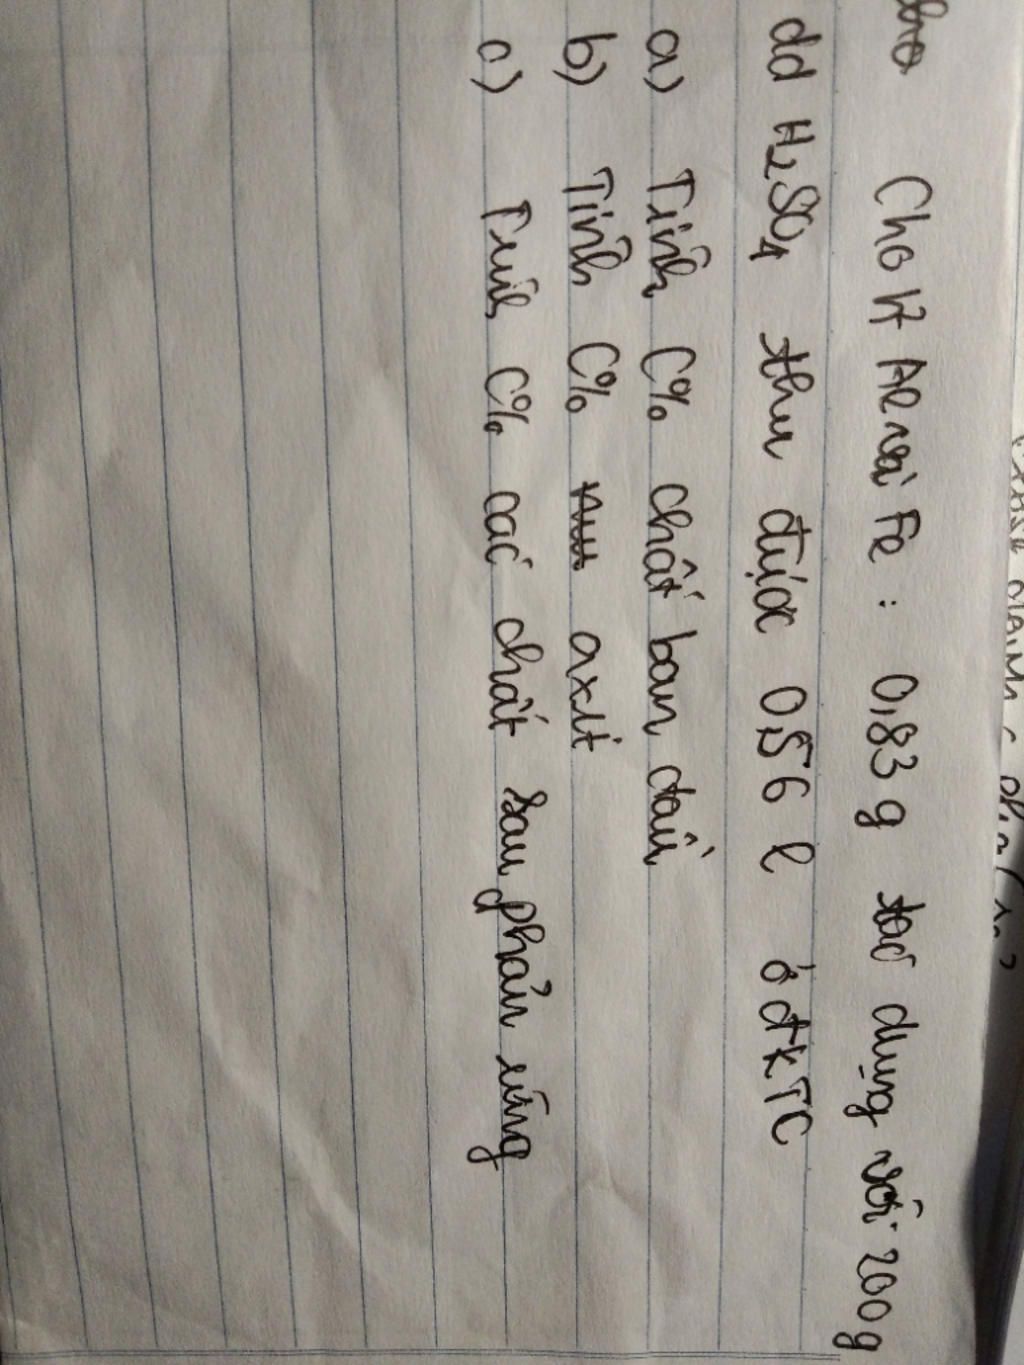 Cho H² Al và Fe : 0,83 g tác dụng với 200g
dd H₂SO₄ thu được 0,56 l ở đkTC
a) Tính C% chất ban đầu
b) Tính C% axit
c) Tính C% các chất sau phản ứng